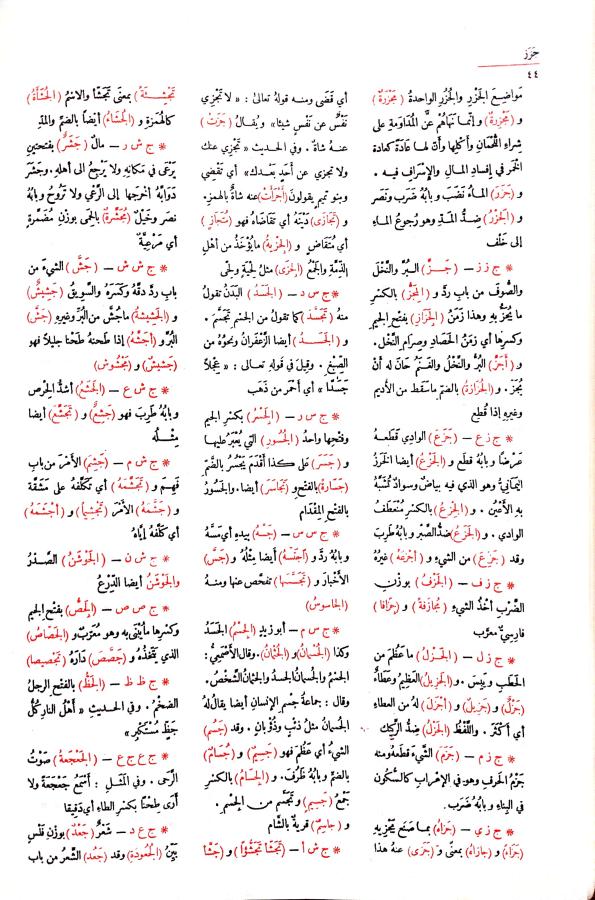 جَرَز
٤٤
مَواضِعَ الجَزْرِ والجُزُرِ الواحدةُ (مَجْزَرةٌ)
و (مَجْزِرةٌ) و إنّما نهاهُمْ عن المُداوَمةِ على
شِراء اللُّحمانِ وأكلِها وأنّ لها عَادَةً كعادةِ
الخمرِ في إفسادِ المالِ والإِسرافِ فيه .
و (جَزَرَ) الماءُ نَضَب وبابُهُ ضَرَب ونَصَر
و (الجَزْرُ) ضِدُّ المَدِّ وهو رُجوعُ الماءِ
إلى خَلْف
* ج ز ز — (جَــزَّ) البُــرَّ والنَّخْلَ
والصُّوفَ من باب ردّ و (المِجَزُّ) بالكسرِ
ما يُجَزُّ به وهذا زَمَنُ (الجَزَازِ) بفتحِ الجيمِ
وكسرِها أي زَمَنُ الحَصَادِ وصِرامِ النَّخْلِ .
و (أَجَزَّ) البُرُّ والنَّخْلُ والغنَمُ حَانَ له أنْ
يُجَزَّ . و (الجُزَازةُ) بالضمِّ ماسَقَط من الأَديم
وغيرِهِ إذا قُطِع
* ج ز ع — (جَزَعَ) الوادِي قَطَعهُ
عَرْضًا وبابُهُ قَطَعَ و (الجَزْعُ) أيضا الخَرَزُ
اليَمانِيُّ وهو الذي فيه بياضٌ وسوادٌ تُشَبَّهُ
بِهِ الأَعْيُن . و (الجِزْعُ) بالكسرِ مُنعَطَفُ
الوادِي . و (الجَزَعُ) ضدُّ الصَّبْرِ وبابُهُ طَرِبَ
وقد (جَزِعَ) من الشيءِ و (أَجْزَعَهُ) غيرُهُ
* ج ز ف — (الجَزْفُ) بوزنِ
الضَّرْبِ أخْذُ الشيءِ (مُجازَفةً) و (جِزَافا)
فارِسِيٌّ معرَّب
* ج ز ل — (الجَــزْلُ) ما عَظُمَ من
الحَطَبِ ويَبِسَ . و (الجَزِيلُ) العَظِيمُ وعَطَاءٌ
(جَزْلٌ) و (جَزِيلٌ) و (أَجْزَلَ) لهُ من العطاءِ
أي أكْثَرَ . واللَّفْظُ (الجَزْلُ) ضِدُّ الرَّكِيكِ
* ج ز م — (جَزَمَ) الشيءَ قطَعهُ ومنه
جَزْمُ الحرفِ وهو في الإعرابِ كالسُّكون
في البِناءِ وبابُهُ ضَرَب .
* ج ز ي — (جَزاهُ) بما صَنَع يَجْزِيهِ
(جَزَاءً) و (جازاهُ) بمعنًى و (جَزَى) عنه هذا
أي قَضَى ومنـه قولهُ تعالى : « لا تَجْزِي
نَفْسٌ عن نَفْسٍ شيئا» ويُقالُ (جَزَتْ)
عنـهُ شاةٌ . وفي الحديثِ «تَجْزِي عنك
ولا تَجزِي عن أَحَدٍ بعدَك» أي تَقْضِي
وبنو تميمٍ يقولونَ (أَجْزَأَتْ) عنه شاةٌ بالهمز.
و (تَجَازَى) دَيْنَهُ أي تَقَاضاهُ فهو (مُتَجازٍ)
أي مُتَقاضٍ و (الجِزْيةُ) مايُؤْخَذُ من أهلِ
الذِّمَّةِ والجَمْعُ (الجِزَى) مثلُ لِحْيَةٍ ولِحًى
* ج س د — (الجَسَدُ) البَدَنُ تقولُ
منهُ (تَجَسَّدَ) كما تقولُ من الجِسْمِ تَجَسَّمَ .
و (الجَسَدُ) أيضا الزَّعْفَرانُ ونحوُهُ من
الصِّبْغِ . وقيلَ في قولهِ تعالى : « عِجْلًا
جَسَدًا » أي أحْمَرَ من ذَهَب
* ج س ر — (الجِسْرُ) بكسْرِ الجيمِ
وفتحِها واحدُ (الجُسُورِ) التي يُعْبَرُ عليها
و (جَسَرَ) على كذا أقْدَمَ يَجْسُرُ بالضَّمِّ
(جَسَارةً) بالفتْحِ و (تَجَاسَرَ) أيضا. والجَسُورُ
بالفتحِ المِقْدَام
* ج س س — (جَسَّهُ) بيدِهِ أي مَسَّهُ
وبابُهُ ردَّ و (اَجْتَسَّهُ) أيضا مِثْلُهُ و (جَسَّ)
الأَخْبارَ و (تَجَسَّسَها) تفحَّص عنها ومنـهُ
(الجاسوسُ)
* ج س م — أبو زيدٍ (الجِسْمُ) الجَسَدُ
وكذا (الجُسْمَانُ) و (الجُثْمَانُ). وقال الأَصْمَعِيُّ :
الجِسْمُ والجُسْمانُ الجَسدُ والجُثْمانُ الشَّخْصُ .
وقال : جماعةُ جِسْمِ الإنسانِ أيضا يقالُ لهُ
الجُسْمانُ مثلُ ذئبٍ وذُؤْبانٍ . وقد (جَسُمَ)
الشيءُ أي عَظُمَ فهو (جَسِيمٌ) و (جُسَامٌ)
بالضمِّ وبابُهُ ظَرُفَ . و (الجِسَامُ) بالكسْرِ
جَمْعُ (جَسِيمٍ) و تَجَسَّم من الجِسْم .
و (جاسِمٌ) قريةٌ بالشام
* ج ش أ — (تَجَشَّأَ تَجَشُّؤًا) و (جَشَّأَ
تَجْشِئَةً) بمعنَى تَجَشَّأَ والاسْمُ (الجُشَأَةُ)
كالهُمَزةِ و (الجُشَاءُ) أيضاً بالضمِّ والمدِّ
* ج ش ر — مالٌ (جَشَرٌ) بفتحتينِ
يَرْعَى في مَكانِهِ ولا يَرْجِعُ الى أهلِهِ . وجَشَرَ
دَوابَّهُ أخرَجَها إلى الرَّعْيِ ولا تَرُوحُ وبابُهُ
نصَر وخَيْلٌ (مُجَشَّرةٌ) بالحِمَى بوزن مُضَمَّرةٍ
أي مَرْعِيَّةٌ
* ج ش ش — (جَشَّ) الشيءَ من
بابِ ردَّ دقَّهُ وكَسَرهُ والسَّوِيقُ (جَشِيشٌ)
و (الجَشِيشَةُ) ماجُشَّ من البُرِّ وغيرهِ و (جَشَّ)
البُرَّ و (أجَشَّهُ) إذا طَحَنهُ طَحْنا جليلا فهو
(جَشِيشٌ) و (مَجْشُوش)
* ج ش ع — (الجَشَعُ) أشدُّ الحِرْصِ
وبابُهُ طَرِبَ فهو (جَشِعٌ) و (تَجَشَّعَ) أيضا
مِثْــلُه
* ج ش م — (جَشِمَ) الأَمْرَ من بابِ
فَهِمَ و (تَجَشَّمَهُ) أي تَكلَّفَهُ على مَشَقَّةٍ
و (جَشَّمَهُ) الأمْرَ (تَجْشِيماً) و (أَجْشَمَهُ)
أي كلَّفَهُ إيَّاهُ
* ج ش ن — (الجَوْشَنُ) الصَّدْرُ
والجَوْشَنُ أيضا الدِّرْعُ
* ج ص ص — (الجَصُّ) بفتحِ الجيمِ
وكسْرِها مايُبْنَى بِهِ وهو مُعَرَّبٌ و (الجَصَّاصُ)
الذي يتَّخِذُهُ و (جَصَّصَ) دَارَهُ (تَجْصِيصا)
* ج ظ ظ — (الجَظُّ) بالفتحِ الرجلُ
الضخمُ . وفي الحديثِ « أَهْلُ النارِ كلُّ
جَظٍّ مُسْتَكْبِرٍ »
* ج ع ج ع — (الجَعْجَعَةُ) صَوْتُ
الرَّحى . وفي المَثَـلِ : أَسْمَعُ جَعْجَعَةً ولا
أرَى طِحْنًا بكسْرِ الطاءِ أي دقيقا
* ج ع د — شَعْرٌ (جَعْدٌ) بوزنِ فَلْسٍ
بَيِّنُ (الجُعُودةِ) وقد (جَعُدَ) الشَّعْرُ من باب